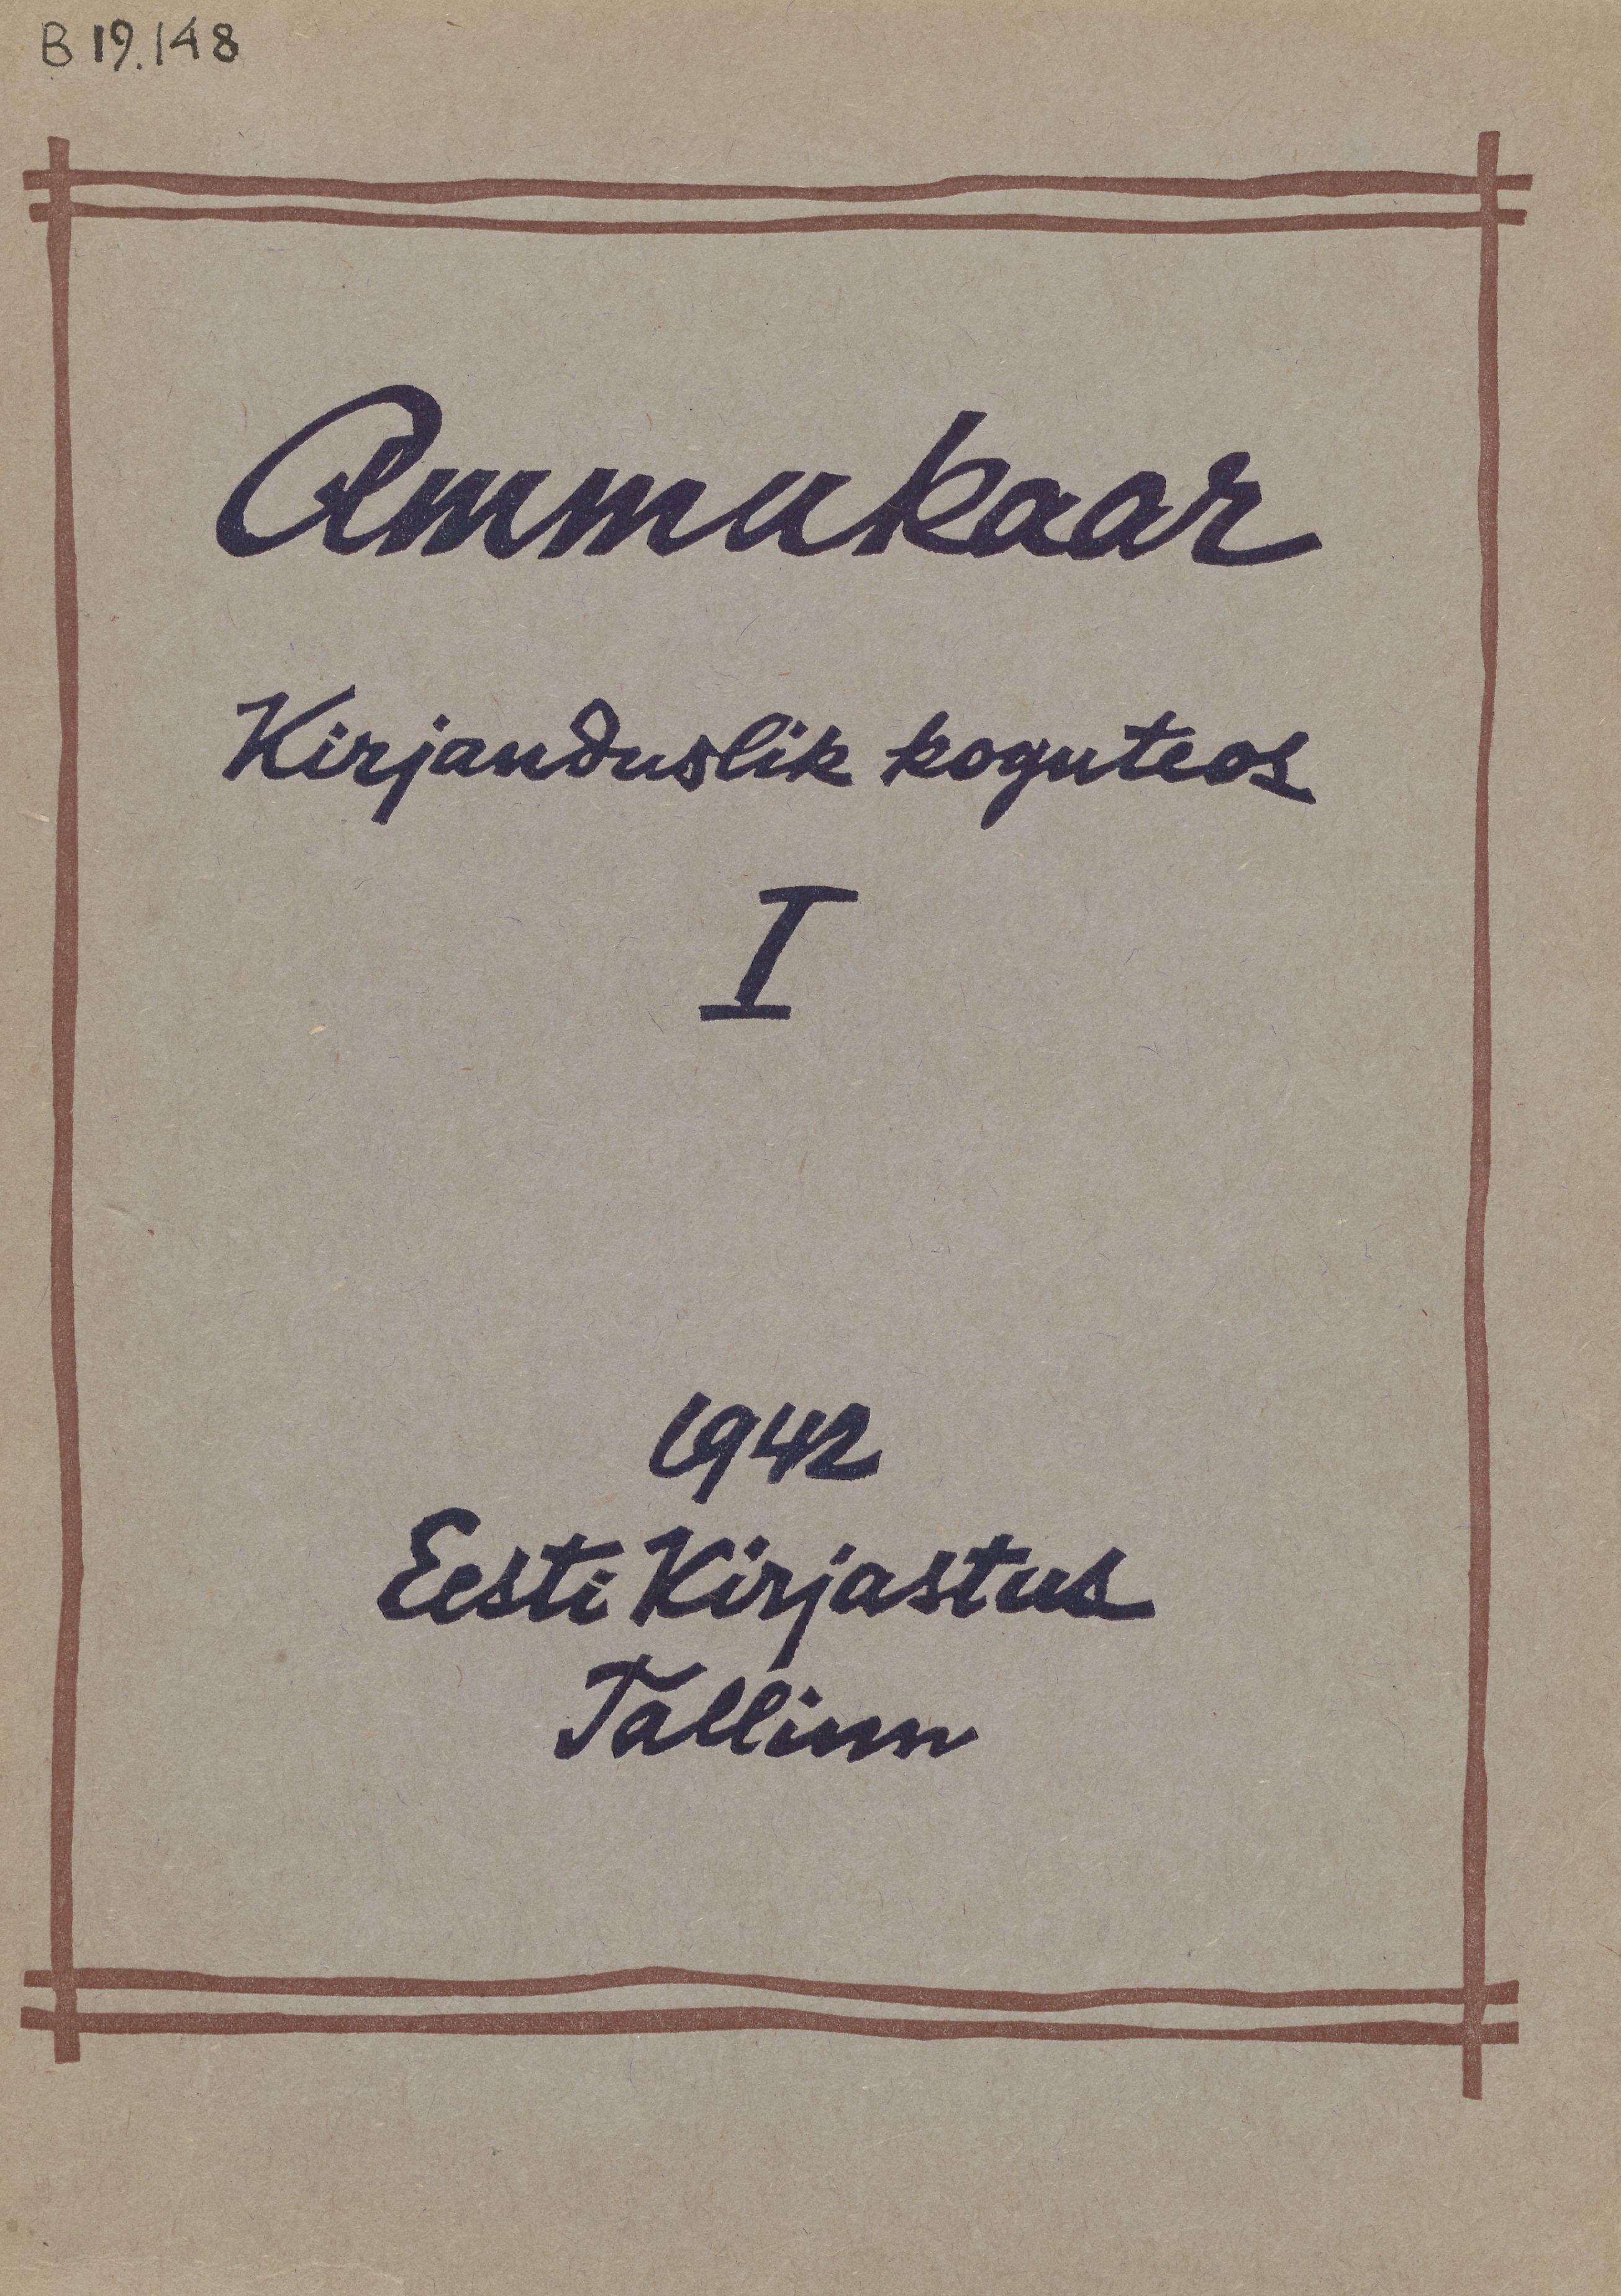 B 19.148
Ammukaar
Kirjanduslik koguteos
I
1942
Eesti Kirjastus
Tallinn